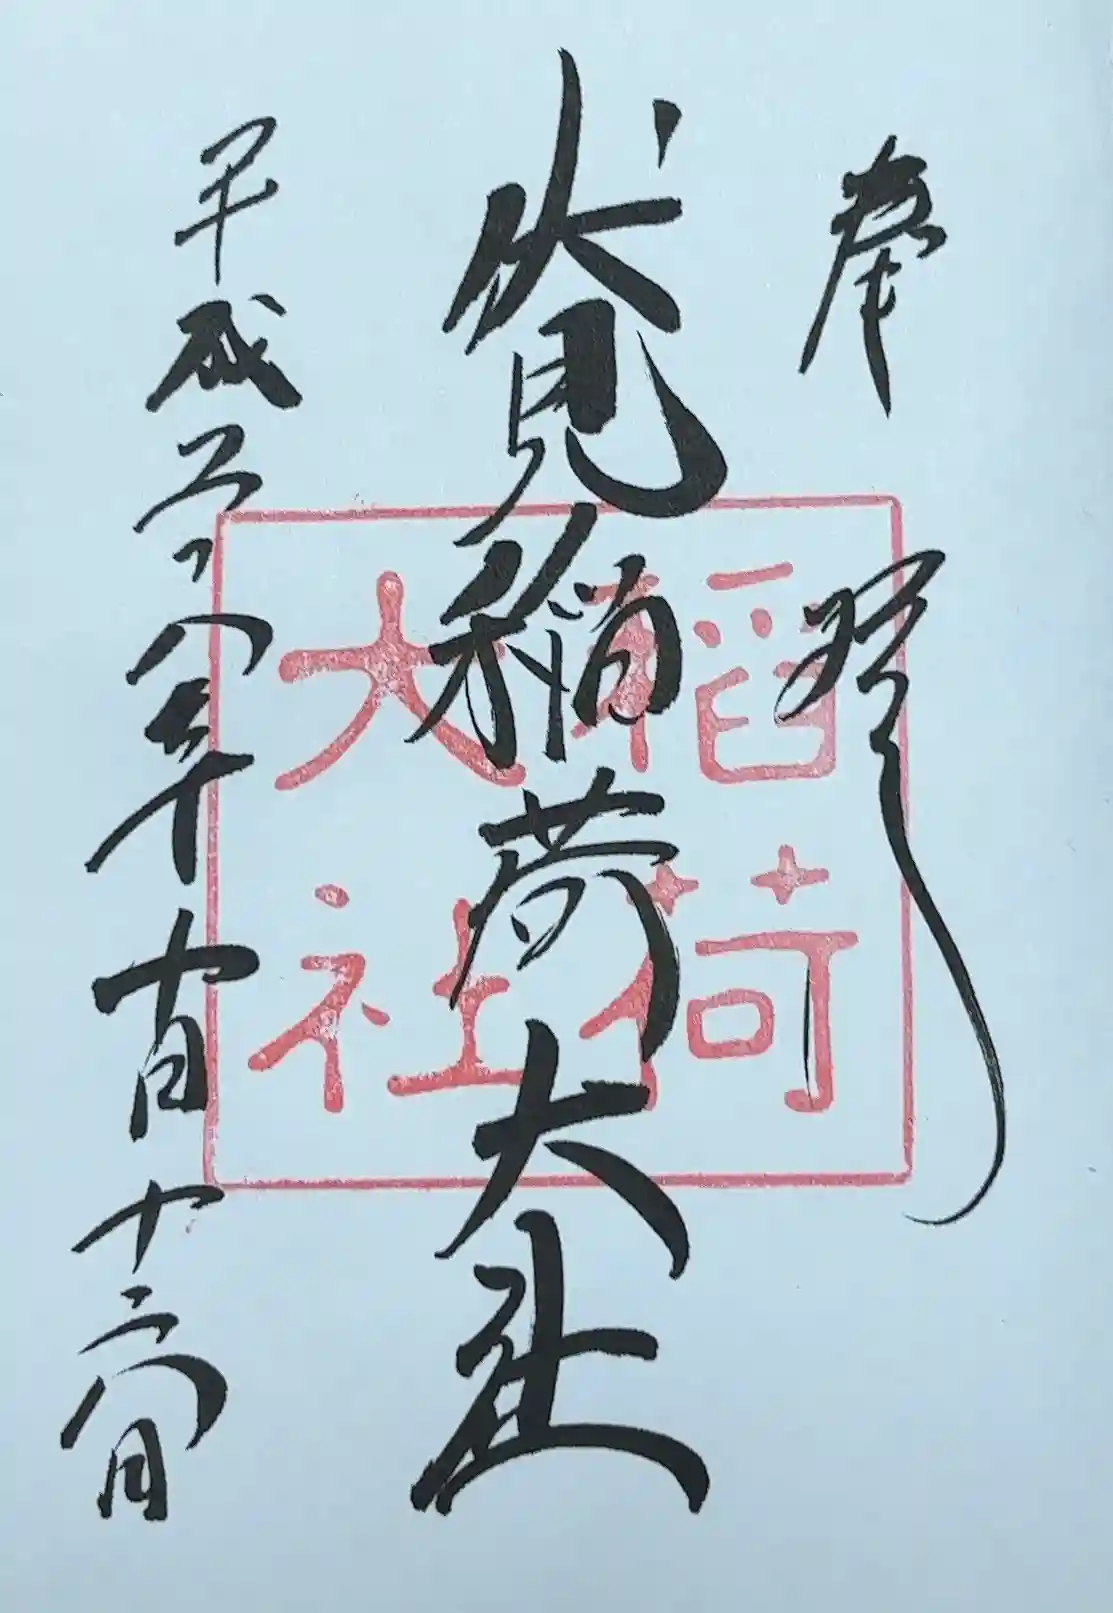 奉拝
伏見稲荷大社
平成 年十月十六日
稲荷
大社